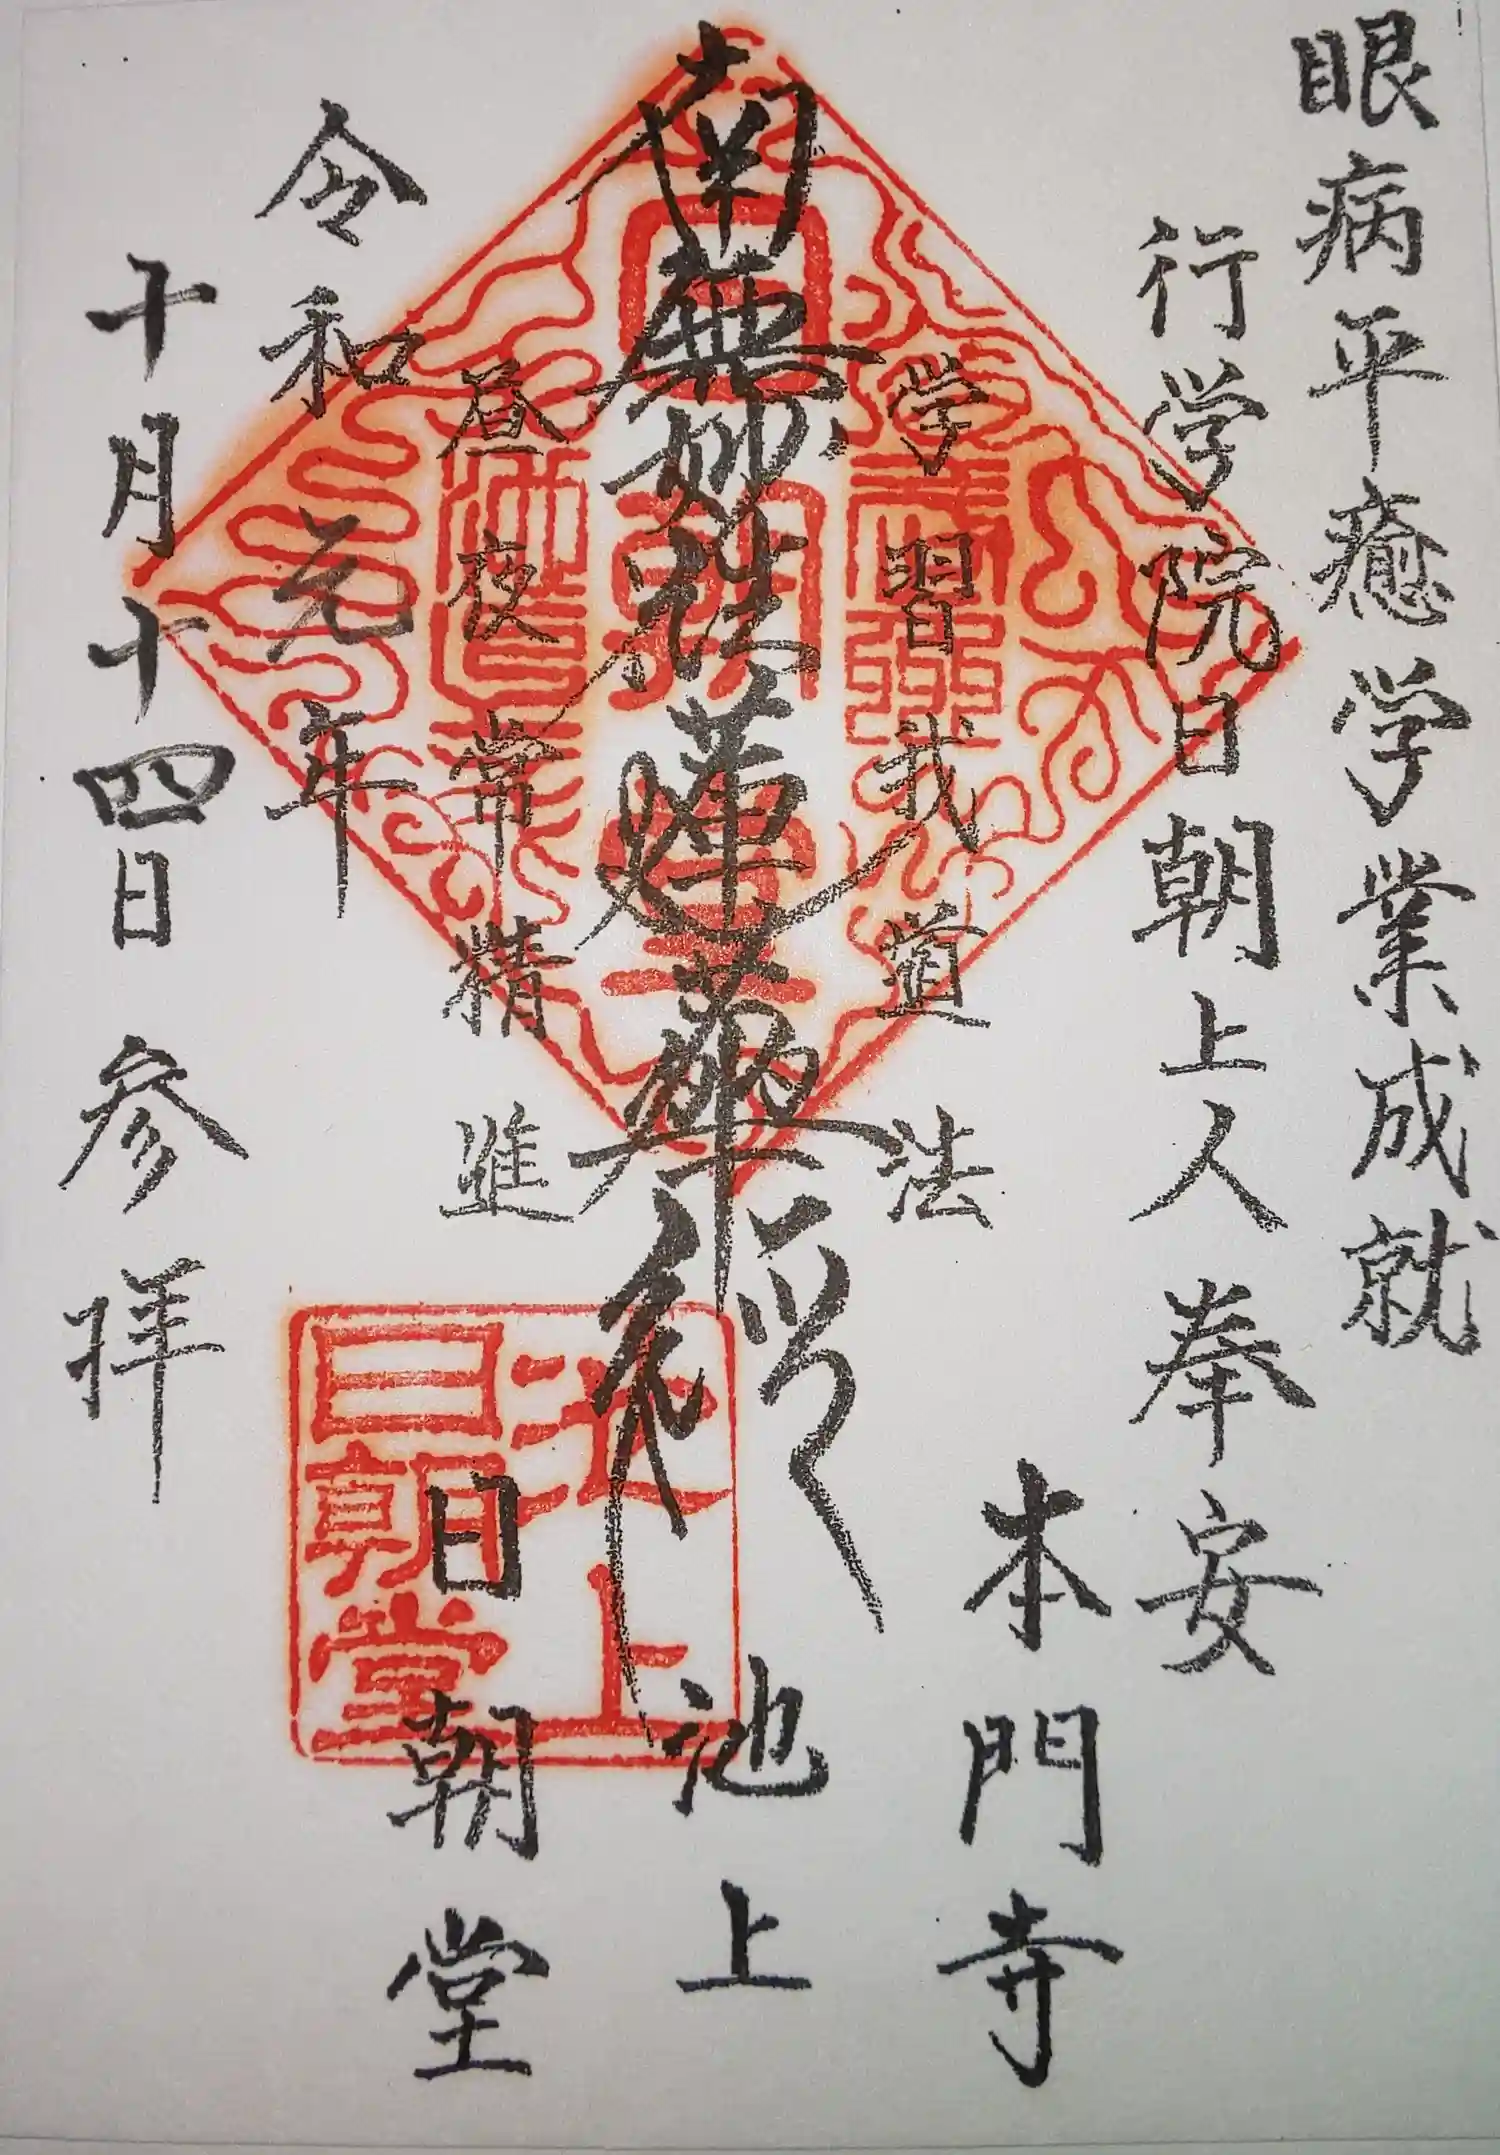 眼病平癒学業成就
行学院日朝上人奉安
学習我道法
本門寺
南無妙法蓮華経
池上
昼夜常精進
日朝堂
令和元年
十月十四日参拝
池上
日朝堂